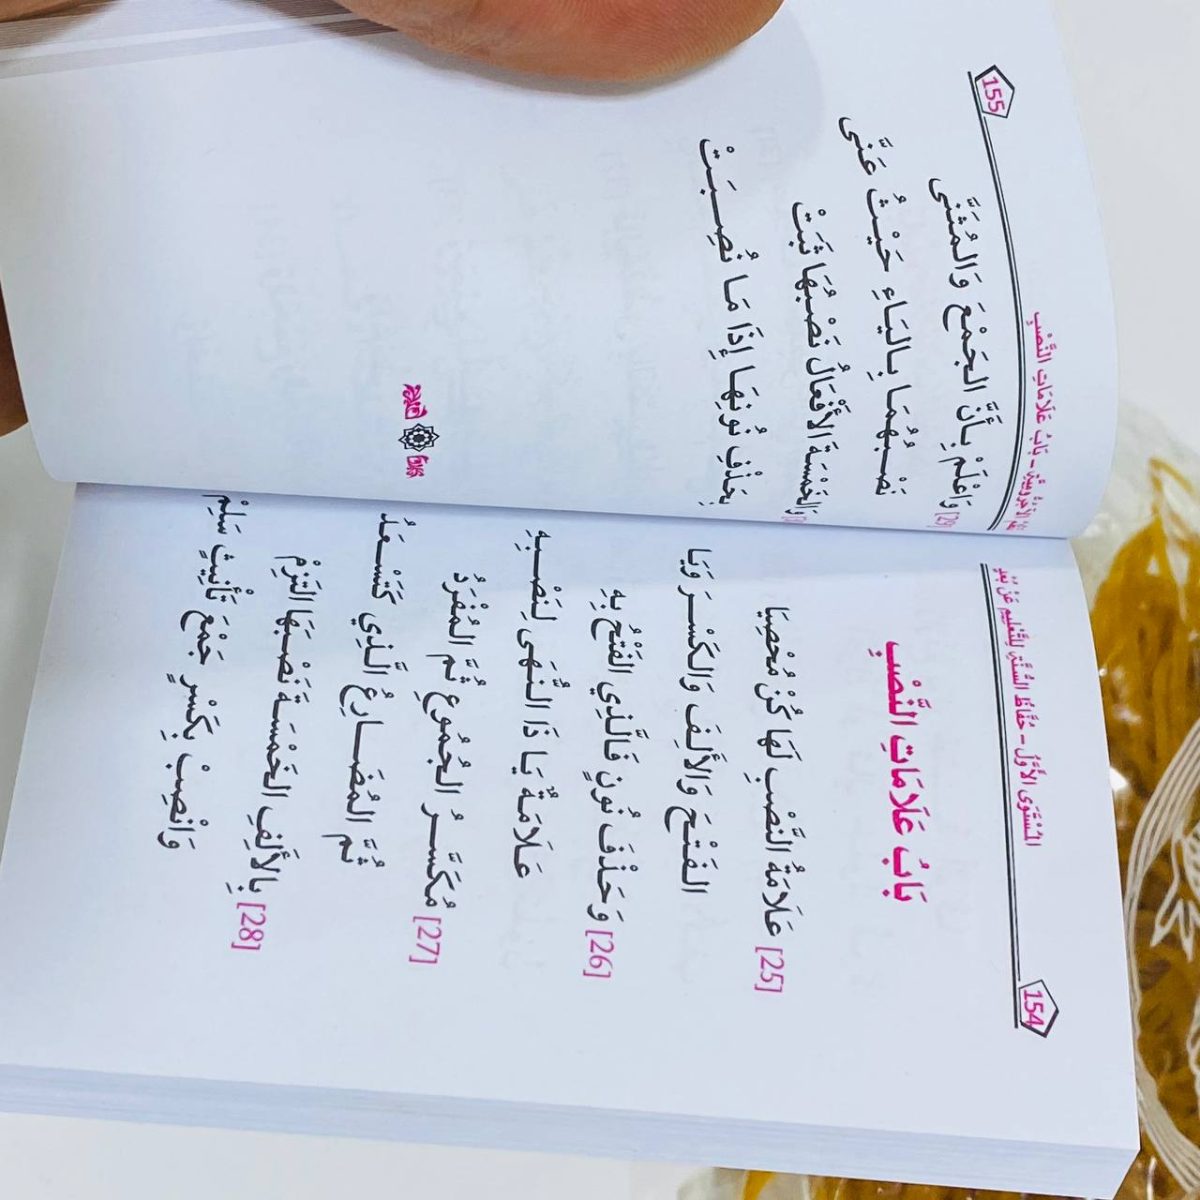 154
المُسْتَوَى الأَوَّلُ - حُفَّاظُ السُّنَّةِ لِلتَّعْلِيمِ عَنْ بُعْدٍ
بَابُ عَلَامَاتِ النَّصْبِ
[25] عَلَامَةُ النَّصْبِ لَهَا كُنْ مُحْصِيَا
الفَتْحَ وَالأَلِفَ وَالكَسْرَ وَيَا
[26] وَحَذْفَ نُونٍ فَالَّذِي الفَتْحُ بِهِ
عَلَامَةٌ يَا ذَا النُّهَى لِنَصْبِهِ
[27] مُكَسَّرُ الجُمُوعِ ثُمَّ المُفْرَدُ
ثُمَّ المُضَارِعُ الَّذِي كَتَسْعَدُ
[28] بِالأَلِفِ الخَمْسَةَ نَصْبَهَا التَزِمْ
وَانْصِبْ بِكَسْرٍ جَمْعَ تَأْنِيثٍ سَلِمْ
بَابُ عَلَامَاتِ النَّصْبِ
155
[29] وَاعْلَمْ بِأَنَّ الجَمْعَ وَالمُثَنَّى
نَصْبُهُمَا بِاليَاءِ حَيْثُ عَنَّى
وَالخَمْسَةُ الأَفْعَالُ نَصْبُهَا ثَبَتْ
بِحَذْفِ نُونِهَا إِذَا مَا نُصِبَتْ